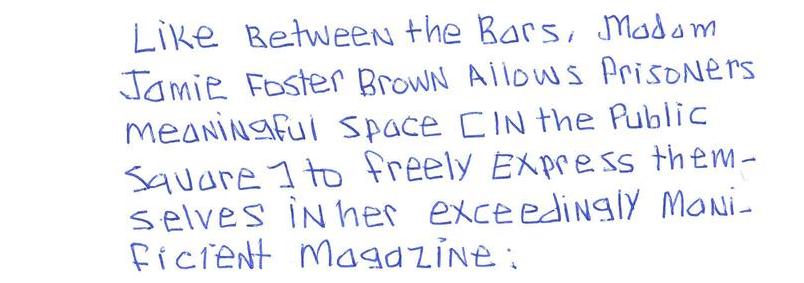 Like Between the Bars, Madam
Jamie Foster Brown Allows Prisoners
meaningful space [IN the Public
Square] to freely Express them-
selves in her exceedingly Mani-
ficient Magazine: